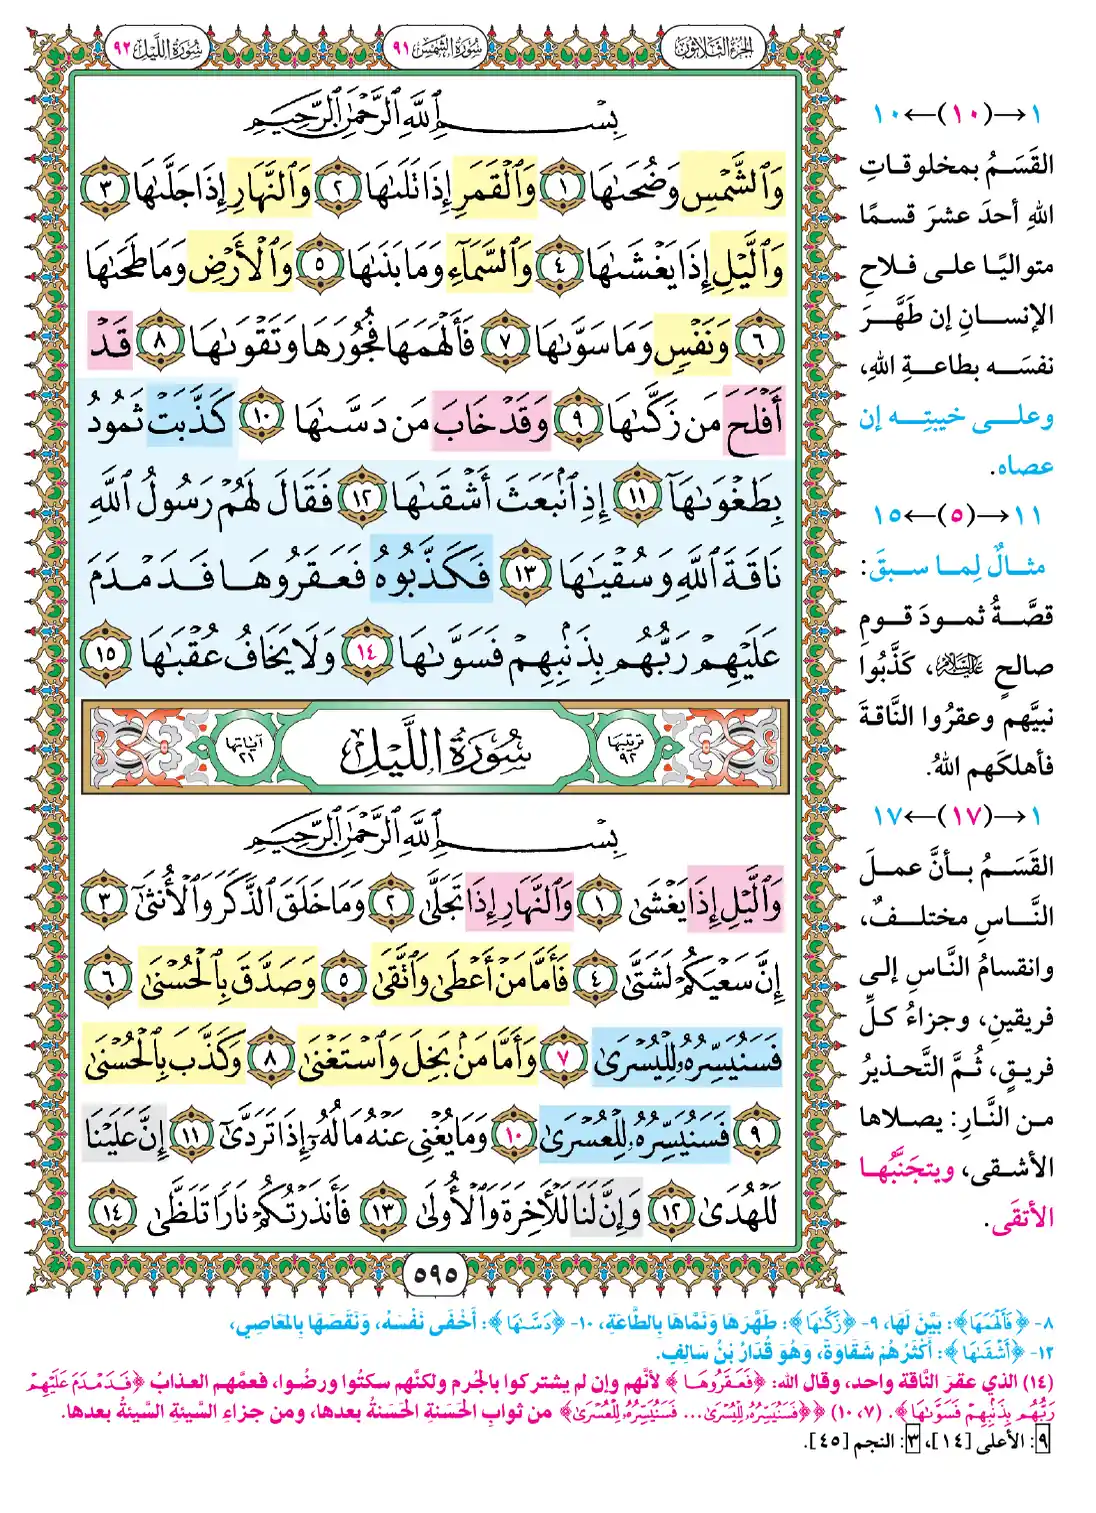 الجزء الثلاثون
سورة الشمس ٩١
سورة الليل ٩٢
بِسْمِ اللَّهِ الرَّحْمَٰنِ الرَّحِيمِ
وَٱلشَّمْسِ وَضُحَىٰهَا ١ وَٱلْقَمَرِ إِذَا تَلَىٰهَا ٢ وَٱلنَّهَارِ إِذَا جَلَّىٰهَا ٣
وَٱلَّيْلِ إِذَا يَغْشَىٰهَا ٤ وَٱلسَّمَآءِ وَمَا بَنَىٰهَا ٥ وَٱلْأَرْضِ وَمَا طَحَىٰهَا
٦ وَنَفْسٍ وَمَا سَوَّىٰهَا ٧ فَأَلْهَمَهَا فُجُورَهَا وَتَقْوَىٰهَا ٨ قَدْ
أَفْلَحَ مَن زَكَّىٰهَا ٩ وَقَدْ خَابَ مَن دَسَّىٰهَا ١٠ كَذَّبَتْ ثَمُودُ
بِطَغْوَىٰهَآ ١١ إِذِ ٱنۢبَعَثَ أَشْقَىٰهَا ١٢ فَقَالَ لَهُمْ رَسُولُ ٱللَّهِ
نَاقَةَ ٱللَّهِ وَسُقْيَٰهَا ١٣ فَكَذَّبُوهُ فَعَقَرُوهَا فَدَمْدَمَ
عَلَيْهِمْ رَبُّهُم بِذَنۢبِهِمْ فَسَوَّىٰهَا ١٤ وَلَا يَخَافُ عُقْبَٰهَا ١٥
ترتيبها ٩٢
سُورَةُ اللَّيْلِ
آياتها ٢١
بِسْمِ اللَّهِ الرَّحْمَٰنِ الرَّحِيمِ
وَٱلَّيْلِ إِذَا يَغْشَىٰ ١ وَٱلنَّهَارِ إِذَا تَجَلَّىٰ ٢ وَمَا خَلَقَ ٱلذَّكَرَ وَٱلْأُنثَىٰٓ ٣
إِنَّ سَعْيَكُمْ لَشَتَّىٰ ٤ فَأَمَّا مَنْ أَعْطَىٰ وَٱتَّقَىٰ ٥ وَصَدَّقَ بِٱلْحُسْنَىٰ ٦
فَسَنُيَسِّرُهُۥ لِلْيُسْرَىٰ ٧ وَأَمَّا مَنۢ بَخِلَ وَٱسْتَغْنَىٰ ٨ وَكَذَّبَ بِٱلْحُسْنَىٰ
٩ فَسَنُيَسِّرُهُۥ لِلْعُسْرَىٰ ١٠ وَمَا يُغْنِى عَنْهُ مَالُهُۥٓ إِذَا تَرَدَّىٰٓ ١١ إِنَّ عَلَيْنَا
لَلْهُدَىٰ ١٢ وَإِنَّ لَنَا لَلْـَٔاخِرَةَ وَٱلْأُولَىٰ ١٣ فَأَنذَرْتُكُمْ نَارًا تَلَظَّىٰ ١٤
٥٩٥
١→(١٠)←١٠
القَسَمُ بمخلوقاتِ
اللهِ أحدَ عشرَ قسمًا
متواليًا على فلاحِ
الإنسانِ إن طَهَّرَ
نفسَه بطاعةِ اللهِ،
وعلى خيبتِه إن
عصاه.
١١→(٥)←١٥
مثالٌ لِما سبقَ:
قصَّةُ ثمودَ قومِ
صالحٍ عليه السلام، كَذَّبُوا
نبيَّهم وعقرُوا النَّاقةَ
فأهلكَهم اللهُ.
١→(١٧)←١٧
القَسَمُ بأنَّ عملَ
النَّاسِ مختلفٌ،
وانقسامُ النَّاسِ إلى
فريقينِ، وجزاءُ كلِّ
فريقٍ، ثُمَّ التَّحذيرُ
من النَّارِ: يصلاها
الأشقى، ويتجَنَّبُها
الأتقَى.
٨- ﴿فَأَلْهَمَهَا﴾: بَيَّنَ لَهَا، ٩- ﴿زَكَّىٰهَا﴾: طَهَّرَهَا وَنَمَّاهَا بِالطَّاعَةِ، ١٠- ﴿دَسَّىٰهَا﴾: أَخْفَى نَفْسَهُ، وَنَقَصَهَا بِالمَعَاصِي،
١٢- ﴿أَشْقَىٰهَا﴾: أَكْثَرُهُمْ شَقَاوَةً، وَهُوَ قُدَارُ بْنُ سَالِفٍ.
(١٤) الذي عقرَ النَّاقةَ واحد، وقال الله: ﴿فَعَقَرُوهَا﴾ لأنَّهم وإن لم يشتركوا بالجُرم ولكنَّهم سكتُوا ورضُوا، فعمَّهم العذابُ ﴿فَدَمْدَمَ عَلَيْهِمْ
رَبُّهُم بِذَنۢبِهِمْ فَسَوَّىٰهَا﴾. (٧، ١٠) ﴿فَسَنُيَسِّرُهُۥ لِلْيُسْرَىٰ... فَسَنُيَسِّرُهُۥ لِلْعُسْرَىٰ﴾ من ثوابِ الحَسَنةِ الحَسَنةُ بعدها، ومن جزاءِ السَّيئةِ السَّيئةُ بعدها.
٩: الأعلى [١٤]، ٣: النجم [٤٥].